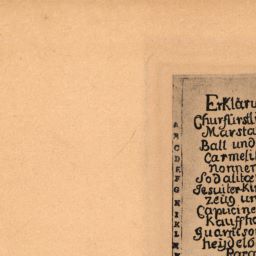 Erklaru
Churfürstli
A Marsta
B Ball und
C Carmelit
D nonnen
E Sodalitæ
F Jesuiter Kir
G zeug un
H Capucine
I Kauffha
K guarniso
L heydelb
Para